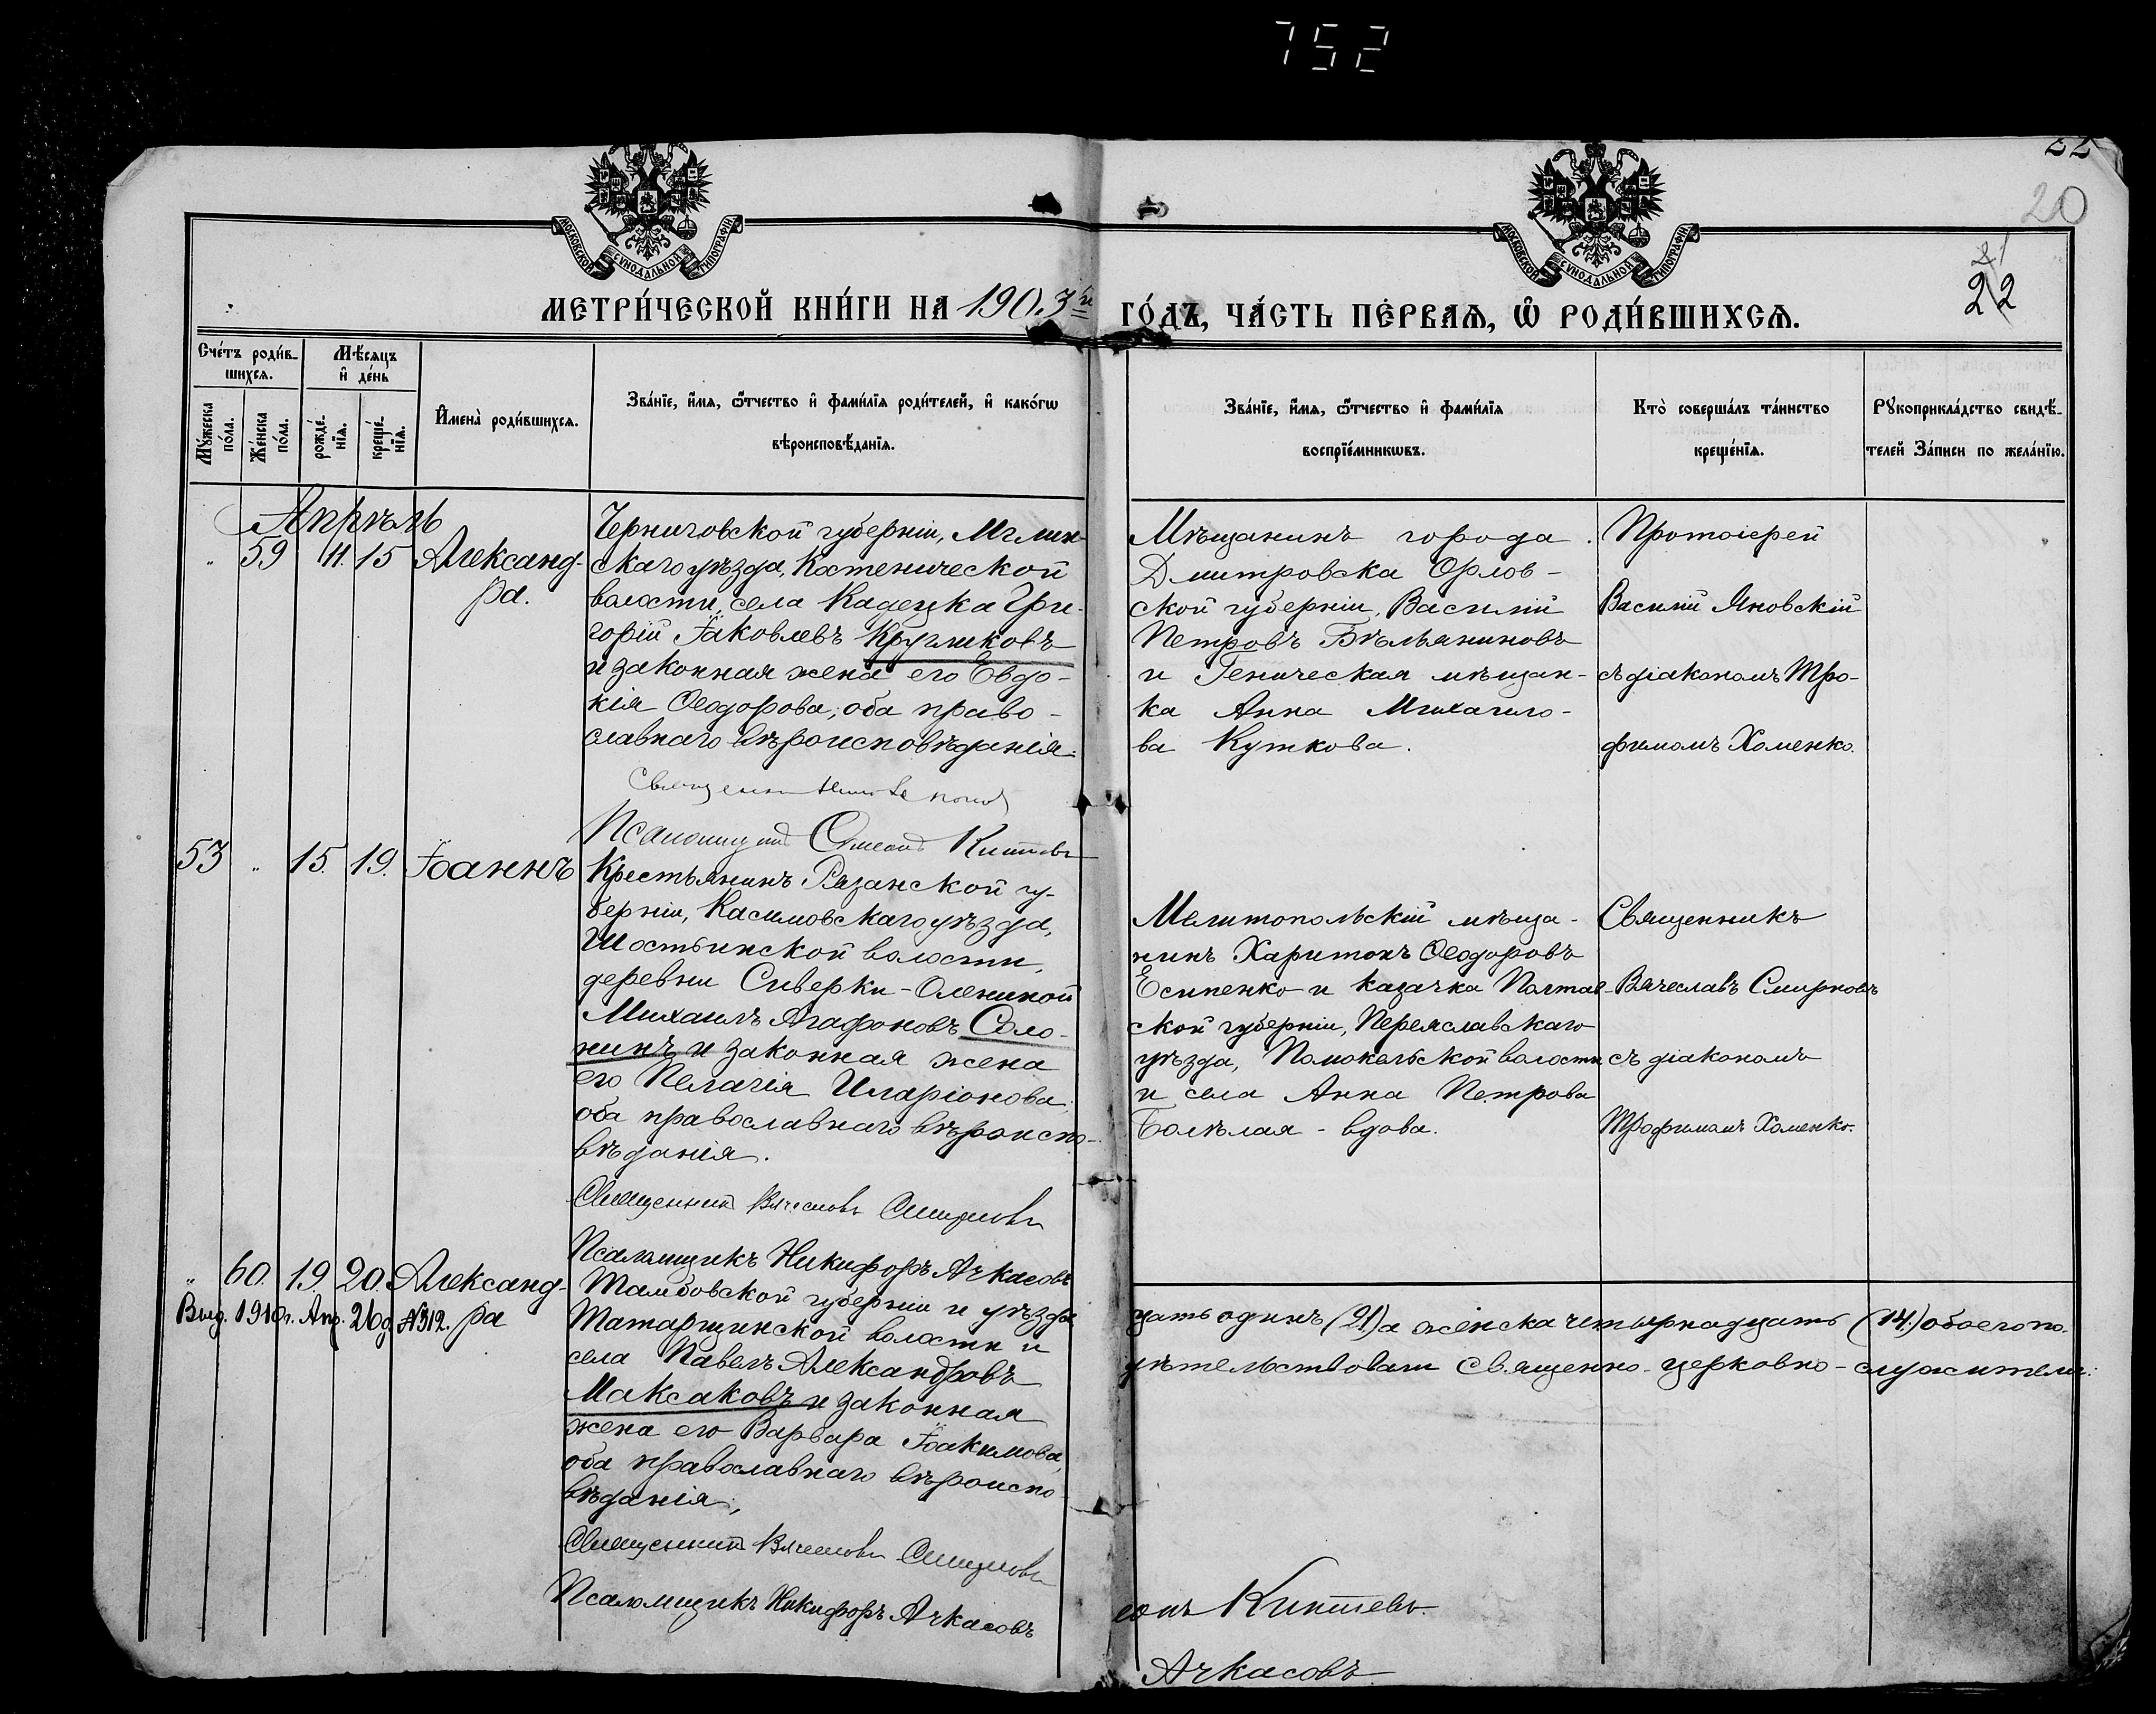 752
22
20
21
22
МОСКОВСКОЙ СѴНОДАЛЬНОЙ ТИПОГРАФІИ
МОСКОВСКОЙ СѴНОДАЛЬНОЙ ТИПОГРАФІИ
МЕТРИ́ЧЕСКОЙ КНИ́ГИ НА 1903й ГО́ДЪ, ЧА́СТЬ ПЕ́РВАѦ, Ѡ҆ РОДИ́ВШИХСѦ.
Сче́тъ роди́в-
шихсѧ.
Мѣ́сѧцъ
и҆ де́нь
Мꙋ́жеска по́ла.
Же́нска по́ла.
рожде́-
нїѧ.
креще́-
нїѧ.
И҆мена̀ роди́вшихсѧ.
Зва́нїе, и҆́мѧ, ѻ҆́тчество и҆ фами́лїѧ роди́телей, и҆ како́гѡ
вѣроисповѣ́данїѧ.
Зва́нїе, и҆́мѧ, ѻ҆́тчество и҆ фами́лїѧ
воспрїе́мникѡвъ.
Кто̀ соверша́лъ та́инство
креще́нїѧ.
Рꙋкоприкла́дство свидѣ́-
телей За́писи по жела́нїю.
Апрѣль
" 59 11. 15 Александ-
ра.
Черниговской губерніи, Мглин-
скаго уѣзда, Костенической
волости, села Кадецка Гри-
горій Іаковлевъ Кругликовъ
и законная жена его Евдо-
кія Ѳеодорова; оба право-
славнаго вѣроисповѣданія.
Мѣщанинъ города
Дмитровска Орлов-
ской губерніи, Василій
Петровъ Бѣльяниновъ
и Геническая мѣщан-
ка Анна Михаило-
ва Куткова.
Протоіерей
Василій Яновскій
съ діакономъ Тро-
фимомъ Хоменко.
53 " 15. 19. Іоаннъ
Крестьянинъ Рязанской гу-
берніи, Касимовскаго уѣзда,
Шостьинской волости,
деревни Сиверки-Олениной
Михаилъ Агафоновъ Соло-
нинъ и законная жена
его Пелагія Иларіонова;
оба православнаго вѣроиспо-
вѣданія.
Священникъ Вячеславъ Смирновъ
Псаломщикъ Никифоръ Ачкасовъ
Мелитопольскій мѣща-
нинъ Харитонъ Ѳеодоровъ
Есипенко и казачка Полтав-
ской губерніи, Переяславскаго
уѣзда, Помокельской волости
и села Анна Петрова
Болѣлая - вдова.
Священникъ
Вячеславъ Смирновъ
съ діакономъ
Трофимомъ Хоменко.
" 60. 19. 20. Александ-
ра
Выд. 1910г. Апр. 26д №312.
Тамбовской губерніи и уѣзда
Татарщинской волости и
села Павелъ Александровъ
Максаковъ и законная
жена его Варвара Іоакимова,
оба православнаго вѣроиспо-
вѣданія;
Священникъ Вячеславъ Смирновъ
Псаломщикъ Никифоръ Ачкасовъ
цать одинъ (21) а женска четырнадцать (14.) обоего по-
дѣтельствовали Священно-церковно-служители:
еонъ Киптевъ.
Ачкасовъ